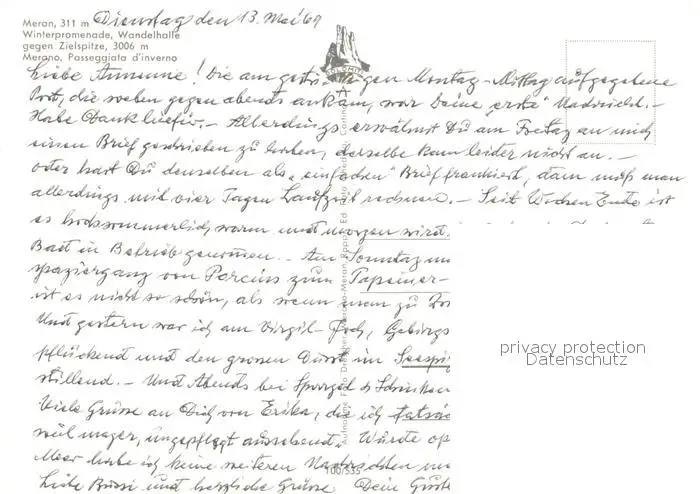 Dienstag den 13. Mai 69
Meran, 311 m
Winterpromenade, Wandelhalle
gegen Zielspitze, 3006 m
Merano, Passeggiata d'inverno
Liebe Die am gestrigen Montag-Mittag aufgegebene
Post, die soeben gegen abends ankam, war Deine "erste" Nachricht. -
Habe Dank hiefür. - Allerdings erwähnst Du am Freitag an mich
einen Brief geschrieben zu haben, derselbe kam leider nicht an. -
oder hast Du denselben als "einfachen" Brief frankiert, dann muß man
allerdings mit vier Tagen Laufzeit rechnen. - Seit Wochen Ende ist
es hochsommerlich warm und morgen wird
Bad in Betrieb genommen. - Am Sonntag
spaziergang von Parcins zum Tapeiner-
ist es nicht so schön, als wenn man zu
Und gestern war ich am Vigil-Joch, Gebirgs
pflückend und den grossen Durst im
stillend. - Und Abends bei Spargel & Schinken
Viele Grüsse an Dich von Erika, die ich
weil mager, ungepflegt aussehend. Wurde
Meer habe ich keine weiteren Nachrichten
Liebe Bussi und herzliche Grüsse Dein
DOLOMITI
100/535
privacy protection
Datenschutz